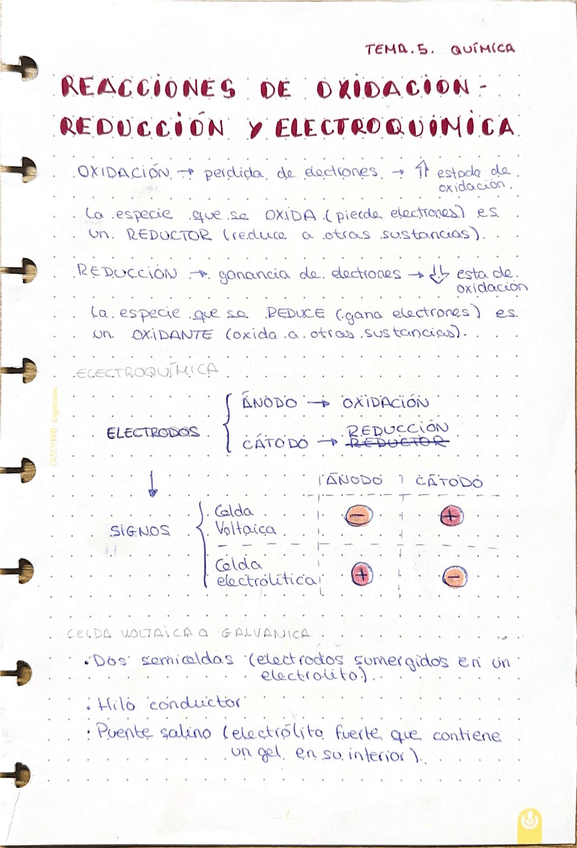 TEMA.5. QUÍMICA
REACCIONES DE OXIDACION-
REDUCCIÓN Y ELECTROQUÍMICA
OXIDACIÓN → perdida de electrones → ⇑ estado de
oxidación.
La especie que se OXIDA (pierde electrones) es
un REDUCTOR (reduce a otras sustancias).
REDUCCIÓN → ganancia de electrones → ⇓ esta de
oxidación
La especie que se REDUCE (gana electrones) es
un OXIDANTE (oxida a otras sustancias).
ELECTROQUÍMICA
ÁNODO → OXIDACIÓN
ELECTRODOS
REDUCCIÓN
CÁTODO → REDUCTOR
ÁNODO CÁTODO
SIGNOS
Celda
Voltaica - +
Celda
electrolítica + -
CELDA VOLTAICA O GALVANICA
· Dos semiceldas (electrodos sumergidos en un
electrolito).
· Hilo conductor
· Puente salino (electrólito fuerte que contiene
un gel en su interior).